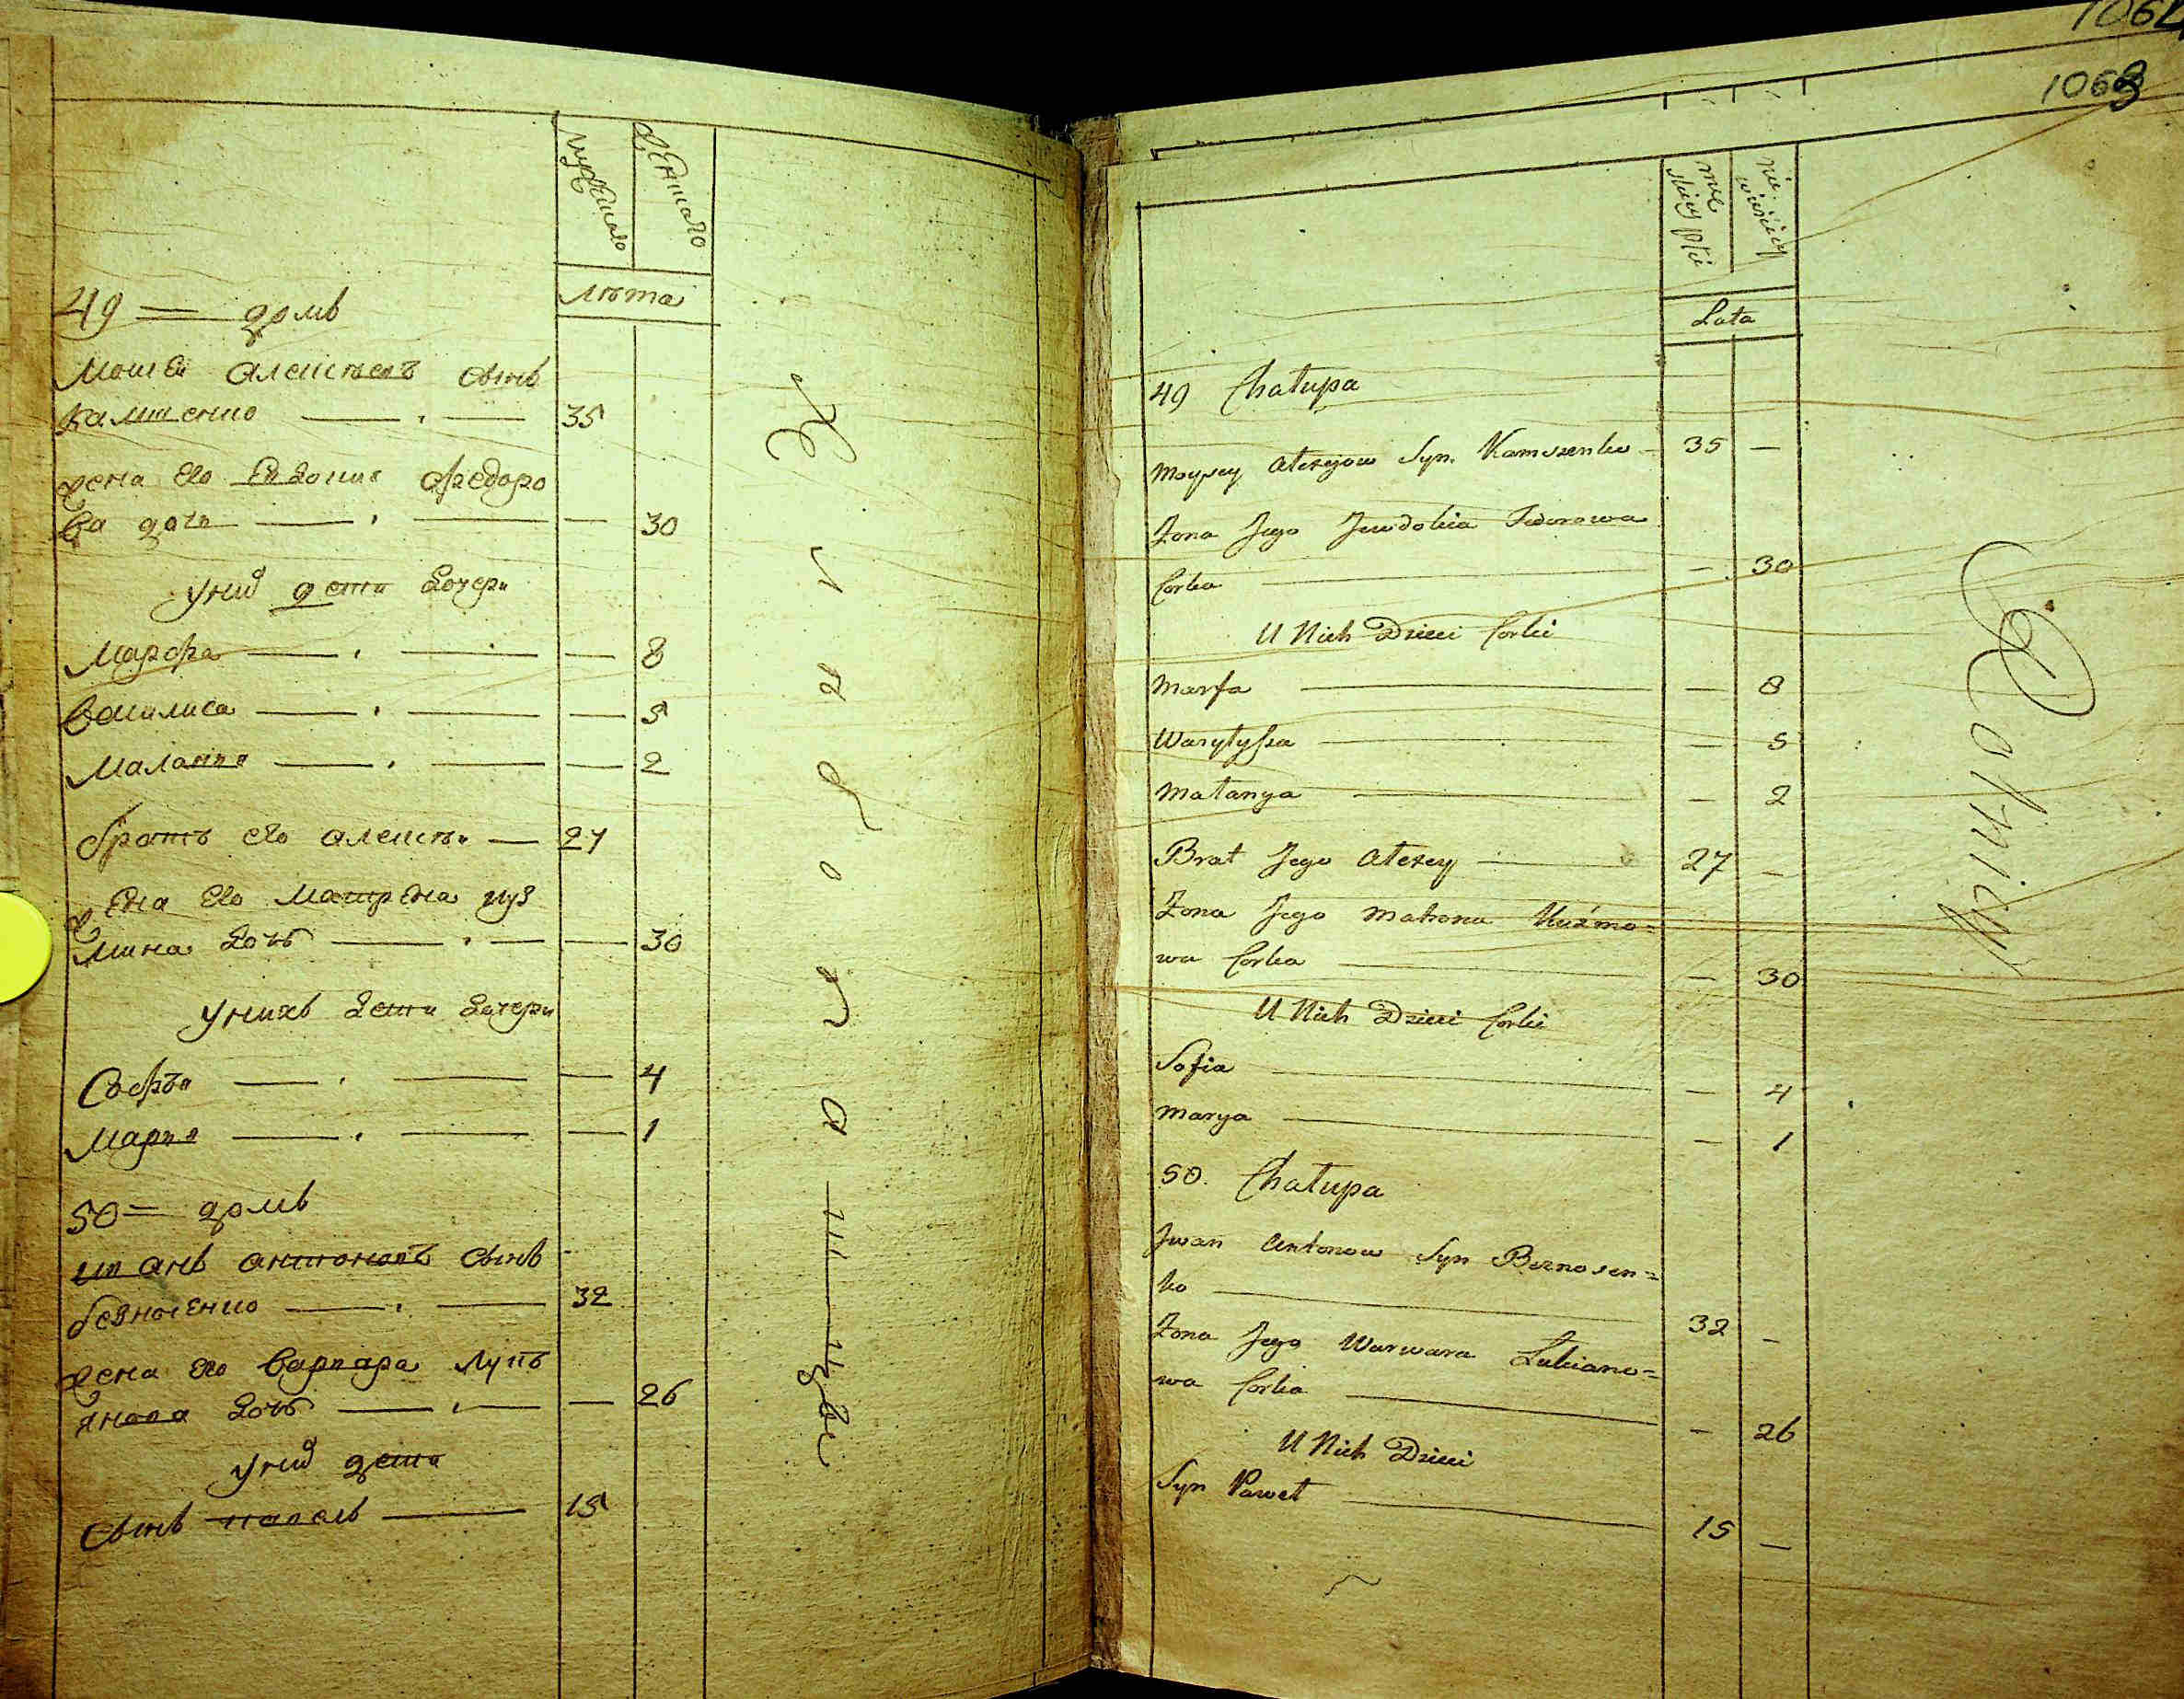 мужескаго
Женскаго
Лѣта
49 = домъ
Моисей алексѣевъ сынъ
Камшенко 35
жена Его Евдокия Федоро
ва дочь 30
у них дети Дочери
Марфа 8
Василиса 5
Малания 2
братъ его алексѣй 27
жена Его Матрена куз
мина дочь 30
у нихъ дети Дочери
Софья 4
Мария 1
50 = домъ
иванъ антоновъ сынъ
безносенко 32
жена его варвара Лукѣ
янова дочь 26
у них дети
Сынъ павелъ 15
Хлѣбопашцы
1064
1063
męskiey płci
niewieściey
Lata
49 Chałupa
Moysey Alexejow Syn Kamszenko 35 —
Żona Jego Jewdokia Fedorowa
Corka — 30
U Nich Dzieci Corki
Marfa — 8
Wasylyssa — 5
Małanya — 2
Brat Jego Alexey 27 —
Żona Jego Matrona Kuźmo=
wa Corka — 30
U Nich Dzieci Corki
Sofia — 4
Marya — 1
50. Chałupa
Jwan Antonow Syn Beznosen=
ko 32 —
Żona Jego Warwara Łukiano=
wa Corka — 26
U Nich Dzieci
Syn Paweł 15 —
Rolnicy